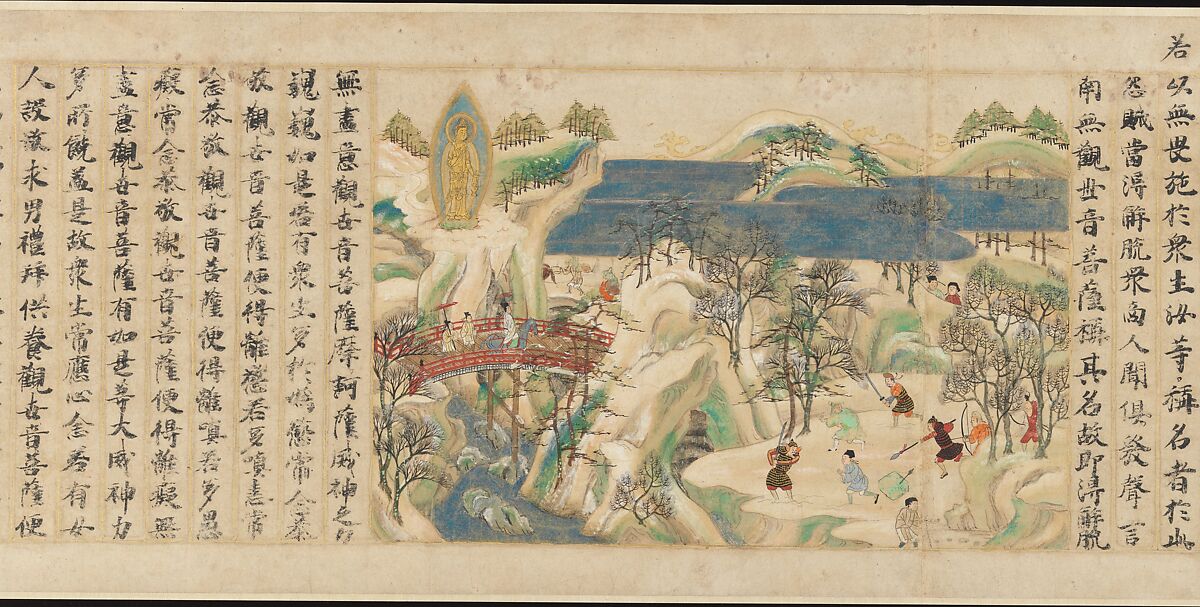 若以無畏施於衆生汝等稱名者於此
怨賊當得解脫衆商人聞俱發聲言
南無觀世音菩薩稱其名故即得解脫
無盡意觀世音菩薩摩訶薩威神之力
巍巍如是若有衆生多於婬慾常念恭
敬觀世音菩薩便得離慾若多瞋恚常
念恭敬觀世音菩薩便得離瞋若多愚
癡常念恭敬觀世音菩薩便得離癡無
盡意觀世音菩薩有如是等大威神力
多所饒益是故衆生常應心念若有女
人設欲求男禮拜供養觀世音菩薩便